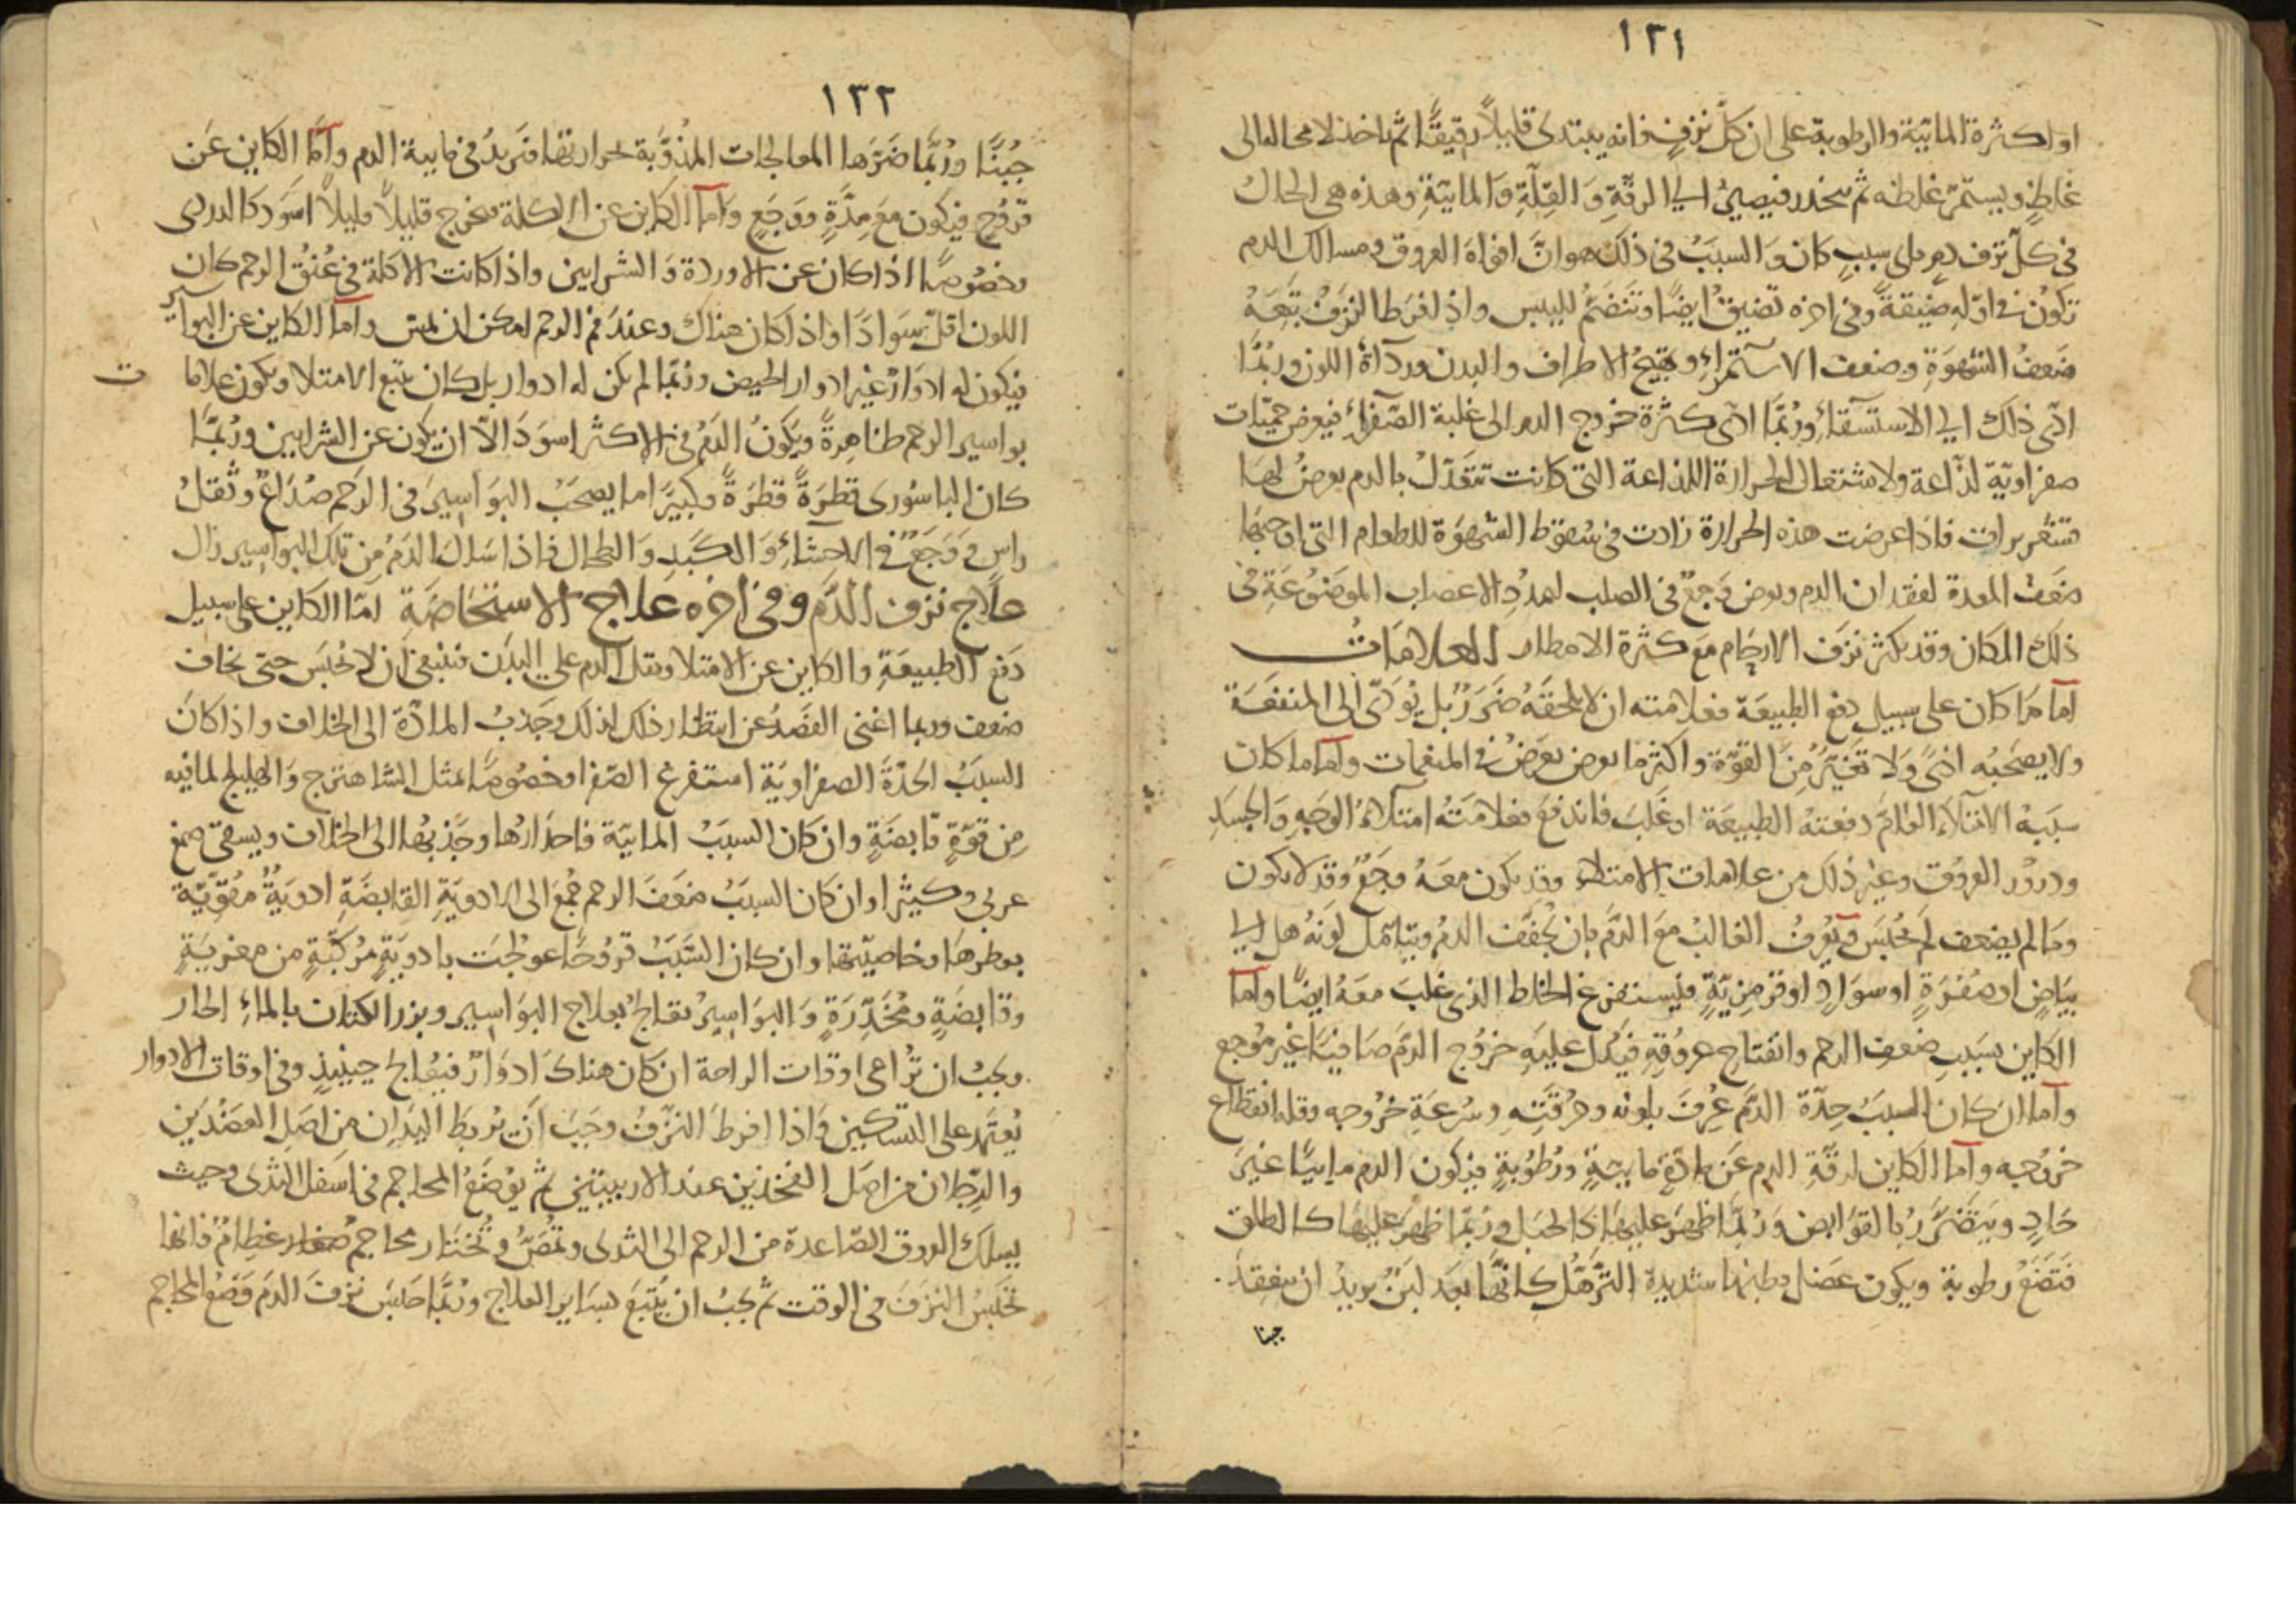 ١٣١
او لكثرة المائية والرطوبة على ان كلّ نزفٍ فانه يبتدى قليلاً رقيقًا ثم ياخذ لا محالة الى
غلظٍ ويستمرّ غلظه ثم ينحدر فيصيرُ الي الرقّةِ وَ القِلّةِ وَ المائيّةِ وهذه هى الحالُ
فى كلّ نزف دمٍ باى سببٍ كان وَ السببُ فى ذلك هو انَّ افواهَ العروق ومسالك الدم
تكونُ فى اوّلهِ ضيّقةً وفى اخره تضيقُ ايضًا وتنضمُّ لليبس واذ افرَط النزفُ تبعَهُ
ضعفُ الشهوَةِ وضعف الاستمراءِ وتهيجُ الاطراف والبدن ورداةُ اللون وربَّما
ادّى ذلك الي الاستسقاءِ وربَّما ادّى كثرة خروج الدم الى غلبة الصّفراءِ فيعرض حميّات
صفراويّة لذّاعة ولاشتعال الحرارة اللذاعة التى كانت تتعدّلُ بالدم يعرضُ لهَا
قشعريرات فاذا عرضت هذه الحرارة زادت فى سُقوط الشهوَة للطعام التى اوجبَها
ضعفُ المعدة لفقدان الدم ويعرض وَجعٌ فى الصلب لتمدُّدِ الاعصاب الموضوُعَةِ فى
ذلك المكان وقد يكثر نزفُ الارحام معَ كثرة الامطار العلامَاتُ
اما مَا كان على سبيل دفع الطبيعَة فعلامته ان لا يلحقَهُ ضَررٌ بل يُؤدّى الى المنفعَةِ
ولا يصحَبُه اذىً وَ لا تغيّرٌ مِنَ القوّة واكثر ما يعرض يعرَضُ فى المنعمات وامّا ما كان
سبَبهُ الامتلاء العَامَّ دفعتهُ الطبيعَة او غَلبَ فاندفعَ فعلامَتُه امتلاءُ الوَجهِ وَ الجسَدِ
ودرُوُر العرُوقِ وغير ذلك من علامات الامتلاء وقد يكون معَهُ وجَعٌ وقد لا يكون
ومَا لم يضعف لم يُحبَس ويُعرفُ الغالبُ معَ الدّمِ بان يُجفَّف الدمُ ويتامّل لونَهُ هل الي
بيَاضٍ او صُفرَةٍ او سوَادٍ او قرمزيّةٍ فيُستفرغ الخلط الذى غلبَ معَهُ ايضًا وامّا
الكاين بسَببِ ضعفِ الرحم وانفتاحِ عروقهِ فيدُلّ عليهِ خرُوج الدّمِ صَافيًا غير مُوجع
وامّا ان كان السببُ حِدّة الدّم عُرفَ بلونه وحرُقتِهِ وسُرعَةِ خرُوجه وقلة انقطاع
خروُجه وامّا الكاين لرقّةِ الدم عَن مادّةٍ مايئةٍ ورُطوبةٍ فيكون الدم مايئًا غيرَ
حَادٍ ويتضَرّرُ بالقوَابض وَربَّما ظهَرَ عليهَا كالحبَل وربَّما ظهَرَ عليهَا كالطلق
فتضَعُ رطوبة ويكون عضَل بطنها شديدة الترهّلِ كانّها بعد لبنٌ يريدُ ان ينعقدَ.
جبنا
١٣٢
جُبُنًا وربَّما ضَرّهَا المعالجات المُذوِّبَة لحرارتها فتريدُ فى مايية الدم وامَّا الكاين عَن
قروُحٍ فيكون معَ مِدَّةٍ ووَجَعٍ وامّا الكاين عن الاكلة فيخرج قليلاً قليلاً اسوَد كالدردى
وخصُوصًا اذا كان عن الاوردة وَ الشرايين واذا كانت الاكلة فى عُنقُ الرحم كان
اللون اقلّ سَوادًا واذا كان هناك وعندَ فم الرحم امكن ان يُمسّ وامّا الكاين عن البواسير
فيكون له ادوَارٌ غير ادوار الحيض وربّما لم يكن له ادوار بل كان يتبع الامتلا ويكون علاما ت
بواسير الرحم ظاهرةً ويكونُ الدّمُ فى الاكثر اسوَدَ الاّ ان يكون عن الشرايين وربَّما
كان الباسُورى قطرَةً قطرَةً وكثيرًا ما يصحَبُ البوَاسيرَ فى الرّحم صُدَاعٌ وثقلُ
راسٍ ووَجَعٌ فى الاحشاءِ وَ الكبدِ وَ الطحال فاذا سَالَ الدّمُ مِن تلك البواسير زال
علاج نزف الدّم وفى اخره علاج الاستحَاضَةِ امّا الكاين على سبيل
دَفع الطبيعَةِ والكاين عن الامتلا وثقل الدم علي البدَن فينبغى ان لا يُحبَس حتى يخاف
ضعف وربما اغنى الفصَدُ عن انتظار ذلك لذلك وجَذبُ المادّة الى الخلاف واذا كان
السببُ الحدّةَ الصفراويّة استفرغ الصّفرا وخصُوصًا بمثل الشاهترج وَ الهليلج لما فيه
مِن قوّةٍ قابضَةٍ وان كان السببُ المائيّة فاحدَارُها وجَذبُها الى الخلاف ويسقى صمغ
عربى وكثيرا وان كَان السببُ ضعفَ الرحم جُمعَ الى الادويَةِ القابضَةِ ادويَةٌ مقوّيَة
بعطرهَا وخاصيّتها وان كان السَّبَبُ قروُحًا عولجَت بادويَةٍ مُركّبَةٍ من مغريَةٍ
وقابضَةٍ ومُخَدِّرَةٍ وَ البوَاسيرُ تعَالجُ بعلاج البوَاسير وبزر الكتان بالماءِ الحار
ويجبُ ان تُراعى اوقات الراحة ان كان هناك ادوَارٌ فيُعَالج حينيذٍ وفى اوقات الادوار
يُعتمَد على التسكين وَاذا افرط النزفُ وجَبَ ان يُربطَ اليَدان مِن اصَل العضُدَين
والرِّجلان من اصَل الفخذين عند الاربيتين ثم يُوضَعُ المحاجم فى اسفل الثدى وحيث
يسلك العروق الصّاعدة من الرحم الى الثدى وتُمصّ وتُختَار محاجم عظامٌ فانها
تحبسُ النزفَ فى الوقت ثم يجبُ ان يُتبَعَ بسَاير العلاج وربَّما حَبَسَ نزفَ الدّمِ وَضعُ المحاجم